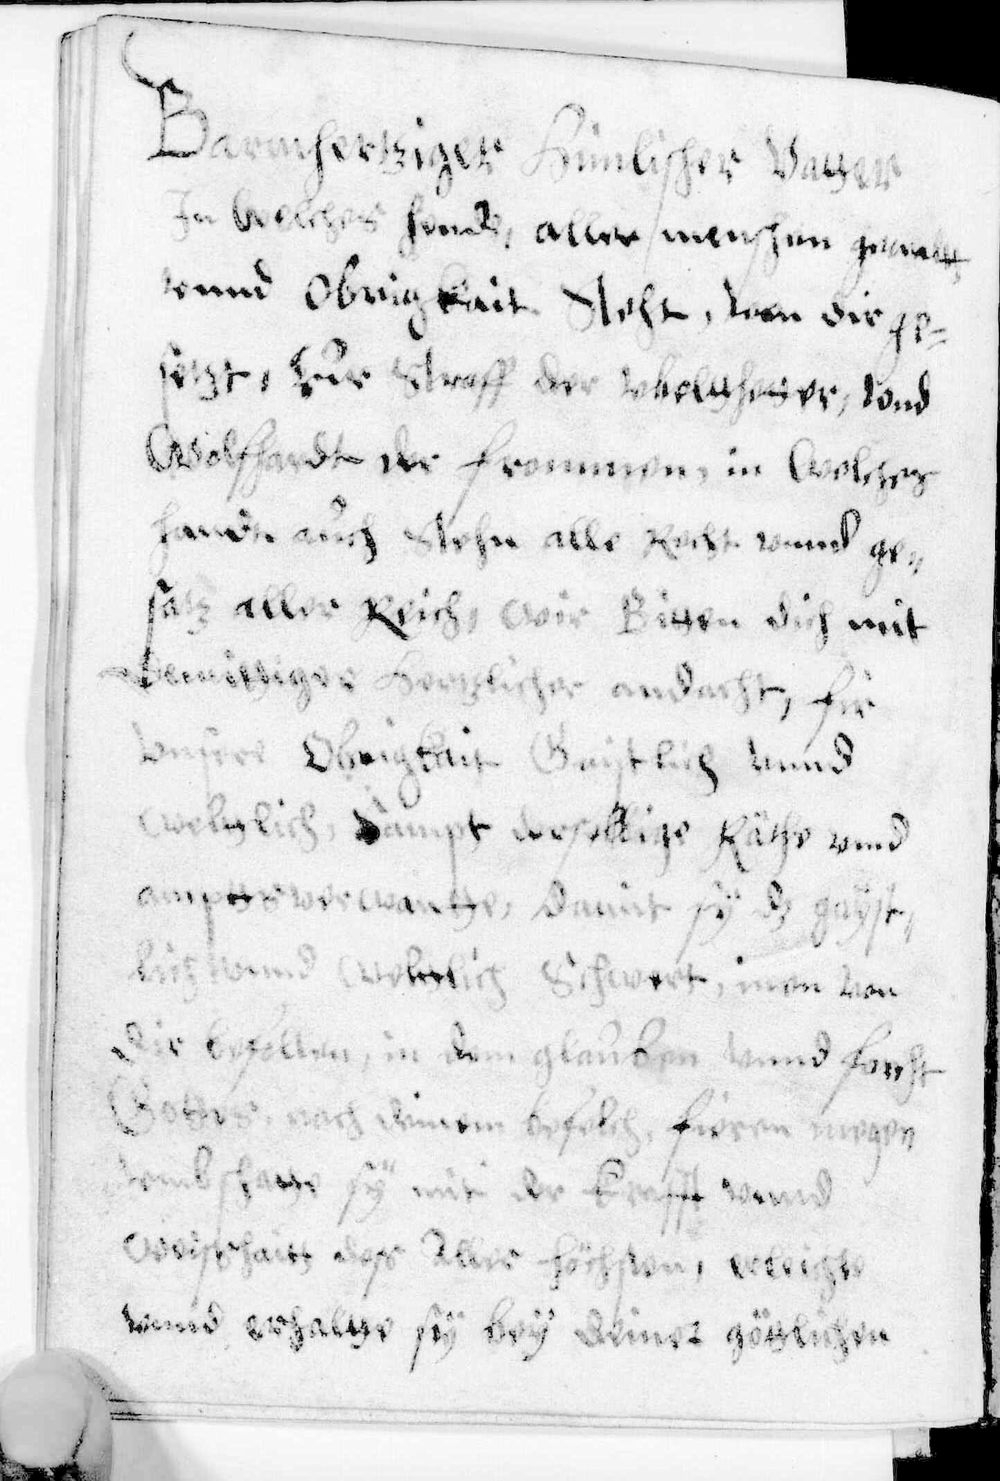 Barmhertziger Himlischer Vatter
In Welches hendt, aller menschen gewaltt
vnnd Obrigkait Steht, von dir ge-
setzt, Zur Straff der vbelthetter, vnd
Wolfhardt der frommen, in Welcher
handt auch Stehn alle Recht vnnd ge-
satz aller Reich, Wir Bitten dich mit
demüttiger Hertzlicher andacht, für
vnsere Obrigkait Gaistlich vnnd
Weltlich, Sampt derselbige Räthe vnnd
amptsverwantte, damit sÿ dz gaÿst-
lich vnnd Weltlich Schwert, inen von
dir befollen, in dem glauben vnnd forcht
Gottes, nach deinem befelch, füeren mege
vmbschatte sÿ mit der Krafft vnnd
Weißhaitt deß Aller höchsten, erleichte
vnnd erhaltte sÿ beÿ deiner göttlichen